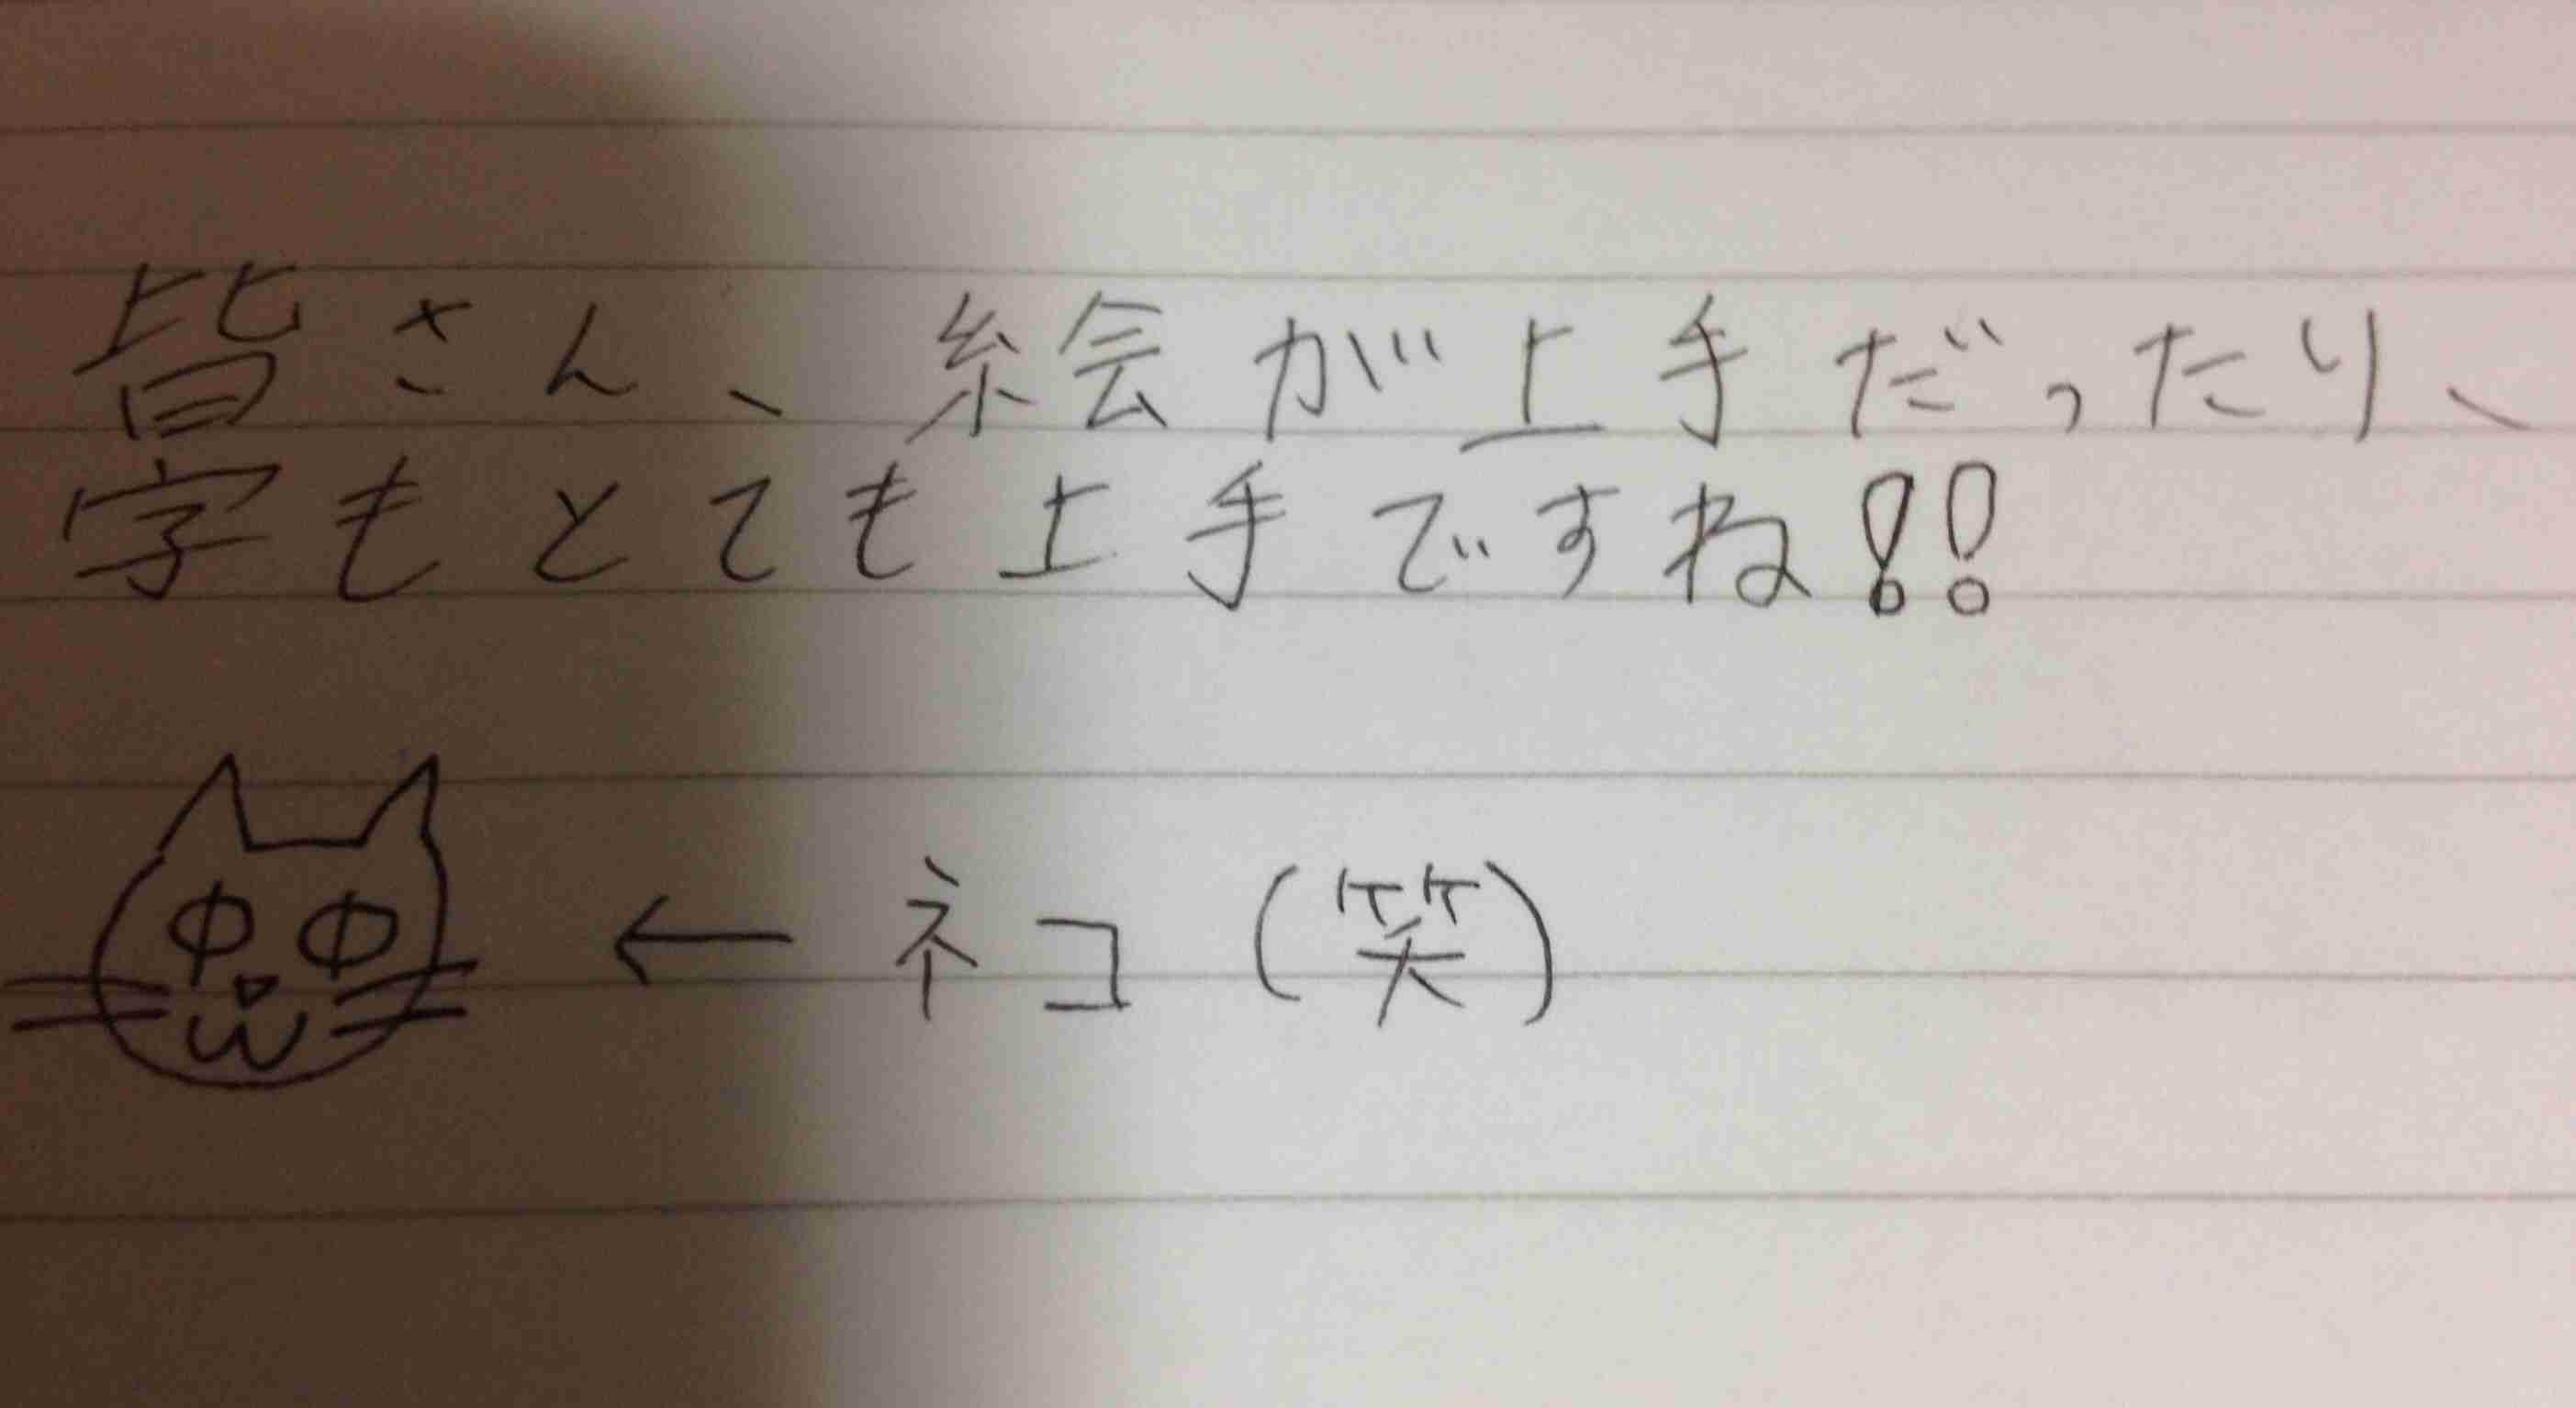 皆さん、絵が上手だったり、
字もとても上手ですね!!
←ネコ(笑)